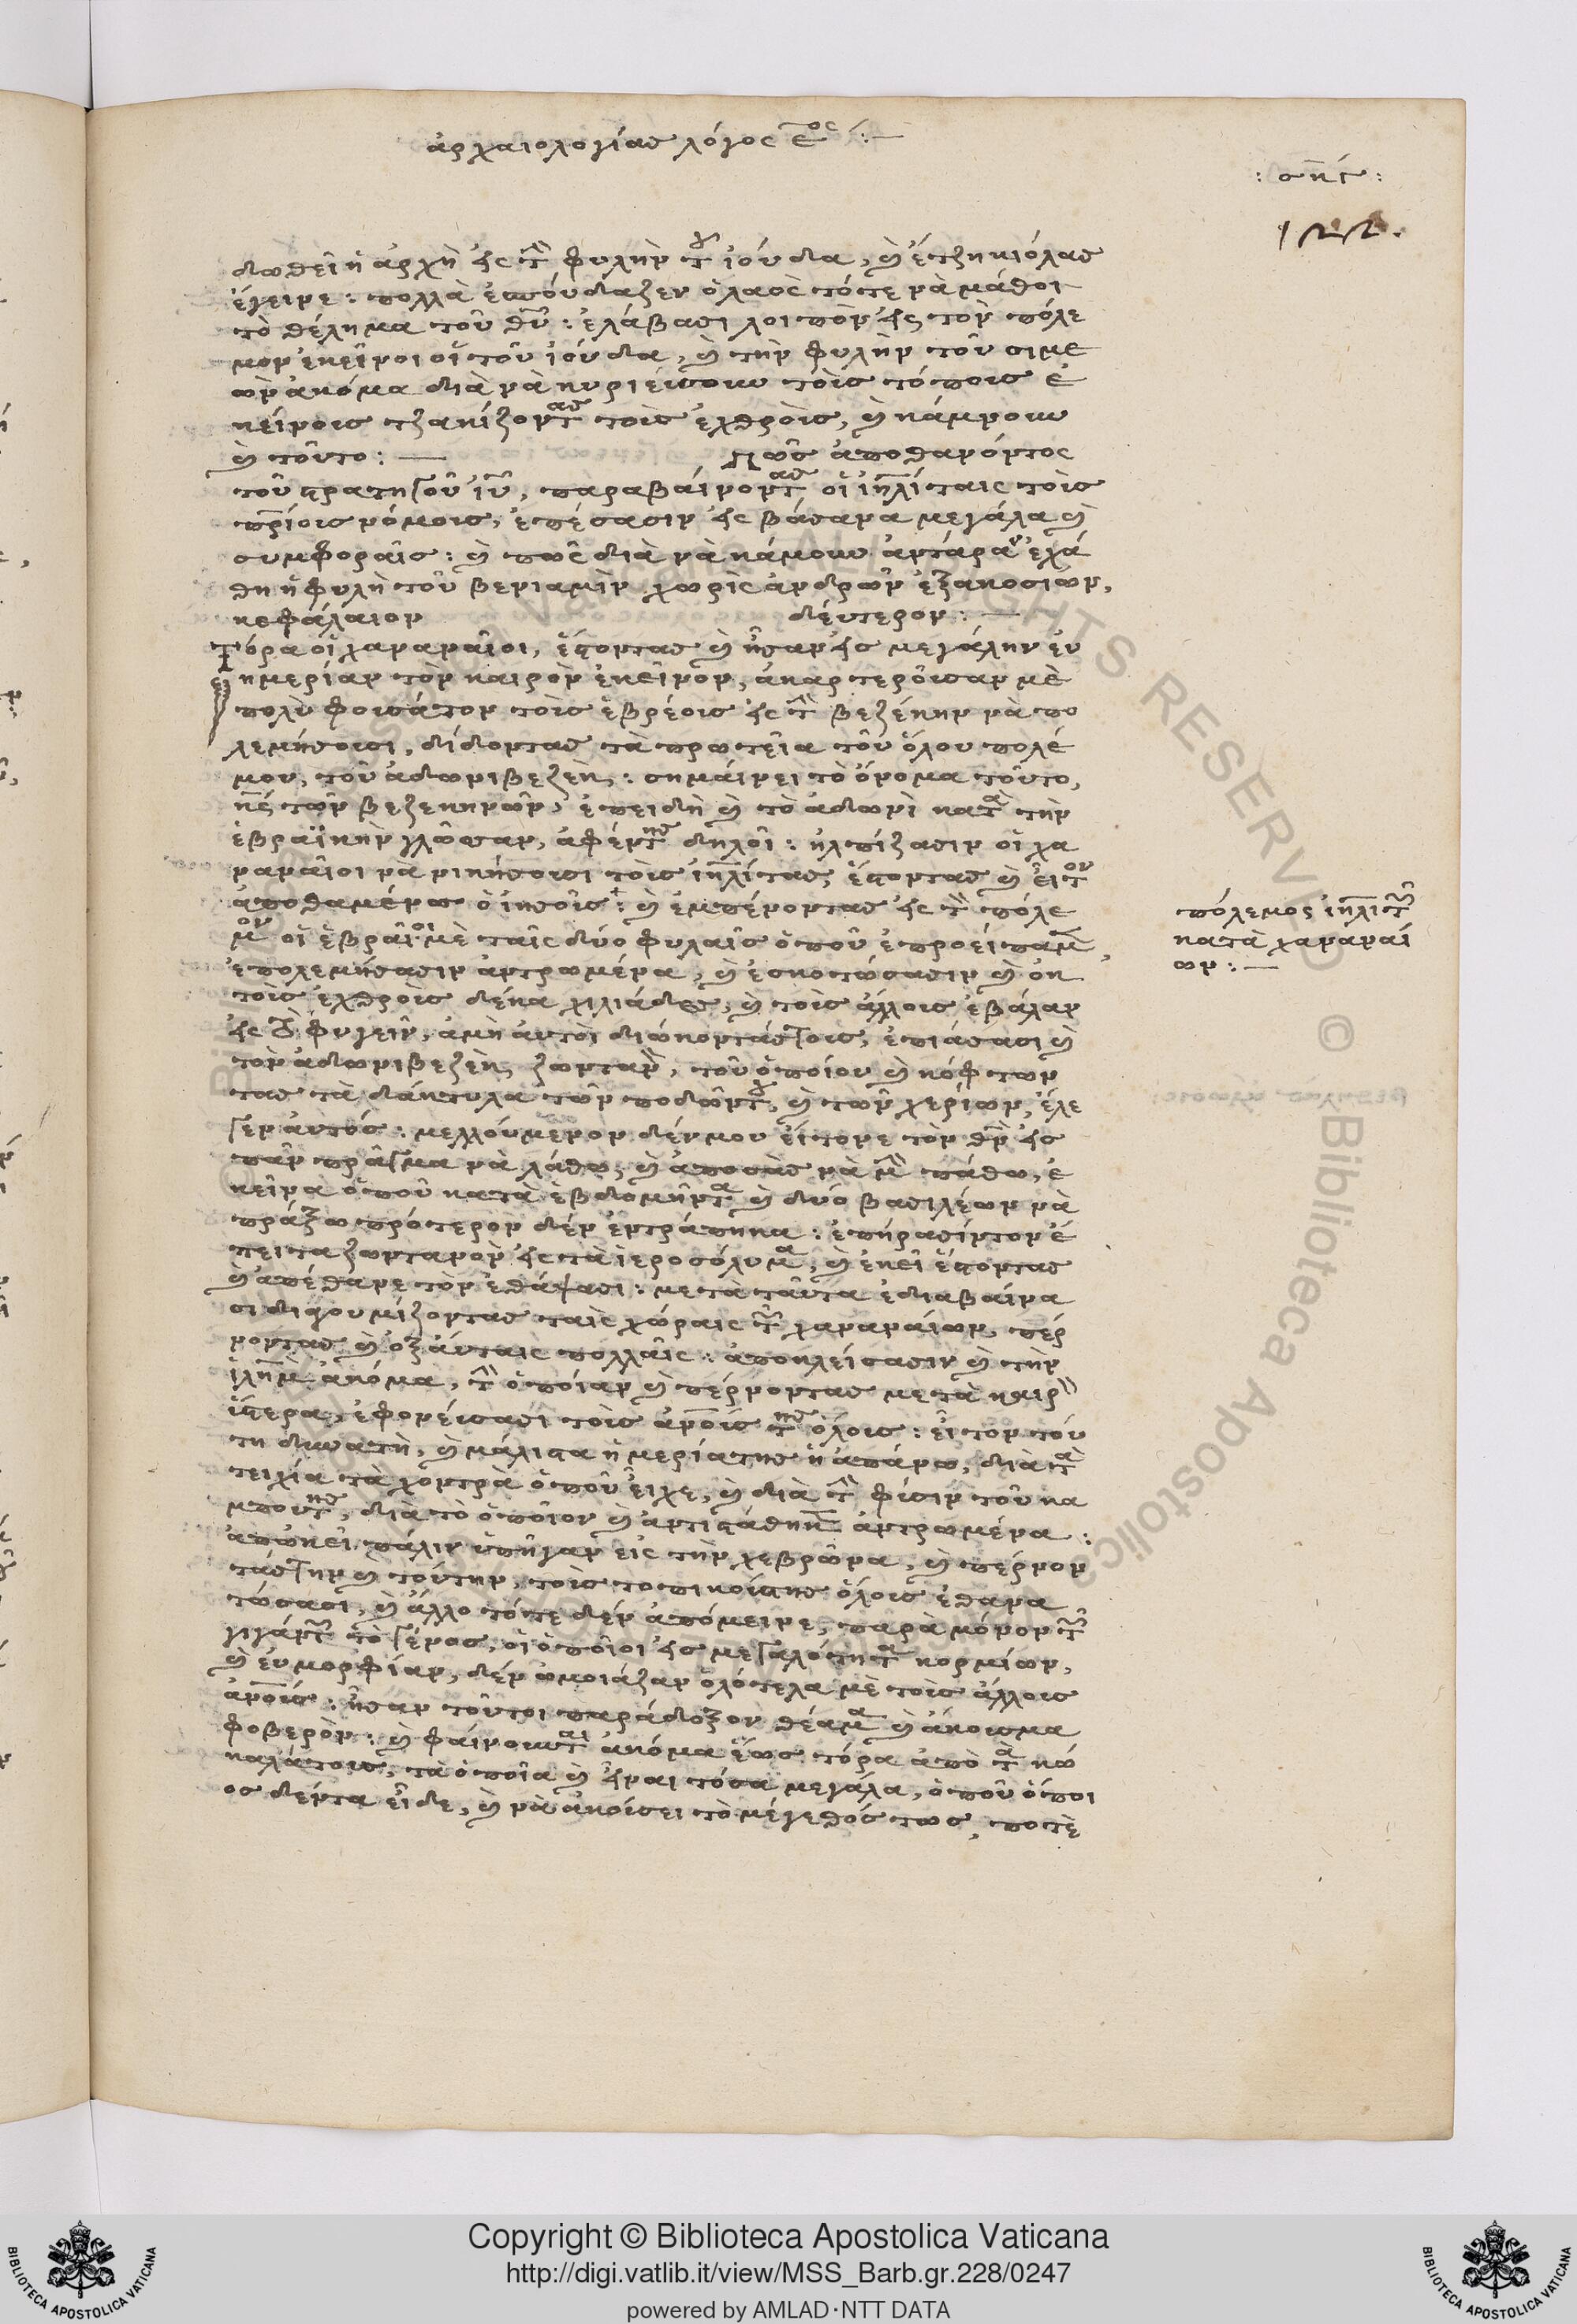 ἀρχαιολογίας λόγος ε^ος :—
: σκς :
δωθεῖ ἡ ἀρχὴ εἰς τὴν φυλὴν τῶν ἰούδα, καὶ ἔτζη κιόλας
ἔγεινε: πολλὰ ἐσπούδαζεν ὁ λαὸς τότε νὰ μάθοι
τὸ θέλημα τοῦ θῦ: ἐλάβασι λοιπὸν εἰς τὸν πόλε
μον ἐκεῖνοι οἱ τοῦ ἰούδα, καὶ τὴν φυλὴν τοῦ σιμε
ὼν ἀκόμα διὰ νὰ κυριεύσουν τοὺς τόπους ἐ
κείνους τζακίζοντας τοὺς ἐχθροὺς, καὶ κάμνουν
καὶ τοῦτο: — Πῶς ἀποθανόντος
τοῦ στρατηγοῦ ἰῦ, παραβαίνοντας οἱ ἰηλίταις τοὺς
πρίους νόμους, ἐπέσασιν εἰς βάσανα μεγάλα καὶ
συμφοραῖς: καὶ πῶς διὰ νὰ κάμουν ἀντάραν ἐχά
θη ἡ φυλὴ τοῦ βενιαμὶν χωρὶς ἀνδρῶν ἑξακοσίων,
κεφάλαιον δεύτερον: —
Τόρα οἱ χαναναῖοι, ἔστοντας καὶ ἦσαν εἰς μεγάλην εὐ
ημερίαν τὸν καιρὸν ἐκεῖνον, ἀκαρτερούσαν μὲ
πολὺ φουσάτον τοὺς ἑβρέους εἰς τὴν βεζέκην νὰ πο
λεμήσουσι, δίδοντας τὰ πρωτεῖα τοῦ ὅλου πολέ
μου, τοῦ ἀδωνιβεζὲκ: σημαίνει τὸ ὄνομα τοῦτο,
κς τῶν βεζεκηνῶν, ἐπειδὴ καὶ τὸ ἀδωνὶ κατὰ τὴν
ἑβραϊκὴν γλῶσσαν, ἀφέντης δηλοῖ: ἠλπίζασιν οἱ χα
ναναῖοι νὰ νικήσουσι τοὺς ἰηλίτας, ἔστοντας καὶ εἶτον
ἀποθαμένος ὁ ἰησοῦς: καὶ ἐμπένοντας εἰς τὸν πόλε
μον οἱ ἑβραῖοι μὲ ταῖς δύο φυλαῖς ὁποῦ ἐπροείπαμεν,
ἐπολεμήσασιν ἀντρωμένα, καὶ ἐσκοτώσασιν καὶ ἐκ
τοὺς ἐχθροὺς δέκα χιλιάδες, καὶ τοὺς ἄλλους ἐβάλαν
εἰς τὸ φυγεῖν, ἀμὴ αὐτοὶ διώκοντάς τους, ἐπιάσασι καὶ
τὸν ἀδωνιβεζὲκ ζωντανὸν, τοῦ ὁποίου καὶ κόφτων
τας τὰ δάκτυλα τῶν ποδῶν του, καὶ τῶν χερίων, ἔλε
γεν αὐτός: μελλούμενον δέν μου εἴτονε τὸν θν εἰς
πᾶν πρᾶγμα νὰ λάθω, καὶ ἀποσὰς νὰ μὴν πάθω, ἐ
κεῖνα ὁποῦ κατὰ ἑβδομῆντα καὶ δύο βασιλέων νὰ
πράξω πρότερον δὲν ἐντράπηκα: ἐπήρασίντον ἔ
πειτα ζωντανὸν εἰς τὰ ἱεροσόλυμα, καὶ ἐκεῖ ἔστοντας
καὶ ἀπέθανε τὸν ἐθάψασι: μετὰ ταῦτα ἐδιαβαίνα
σι διαγουμίζοντας ταῖς χώραις τῶν χαναναίων, πέρ
νοντας καὶ ὀξαύταις πολλαῖς: ἀποκλείσασιν καὶ τὴν
ἱλημ ἀκόμα, τὴν ὁποίαν καὶ πέρνοντας μετὰ καιρὸν
ὕστερα, ἐφονεύσασι τοὺς ἀνους της ὅλους: εἶτον τού
τη δυνατὴ, καὶ μάλιστα ἡ μερίατης ἡ ἀπάνω, διὰ τὰ
τειχία τὰ χοντρὰ ὁποῦ εἶχε, καὶ διὰ τὴν φύσιν τοῦ κα
μπουτης, διὰ τὸ ὁποῖον καὶ ἀντιστάθηκεν ἀντρωμένα:
ἀπῶκεῖ πάλιν ὑπῆγαν εἰς τὴν χεβρῶνα, καὶ πέρνον
τάς την καὶ τούτην, τοὺς τοπικούςτης ὅλους ἐθανα
τώσασι, καὶ ἄλλο τότε δὲν ἀπόμεινε, παρὰ μόνον τῶν
γιγάντων τὸ γένος, οἱ ὁποῖοι εἰς μεγαλότητα κορμίων,
καὶ εὐμορφίαν, δὲν ὡμοιάζαν ὁλότελα μὲ τοὺς ἄλλους
ἀνους: ἦσαν τοῦτοι παράδοξον θέαμα καὶ ἄκουσμα
φοβερὸν: καὶ φαίνουνται ἀκόμα ἕως τόρα ἀπὸ τὰ κώ
καλάτους, τὰ ὁποῖα καὶ εἶναι τόσα μεγάλα, ὁποῦ ὅποι
ος δέντα εἶδε, καὶ νὰ ἀκούσει τὸ μέγεθός τως, ποτὲ
πόλεμος ἰηλιτῶν
κατὰ χαναναί
ων: —
Copyright © Biblioteca Apostolica Vaticana
http://digi.vatlib.it/view/MSS_Barb.gr.228/0247
powered by AMLAD·NTT DATA
BIBLIOTECA APOSTOLICA VATICANA
BIBLIOTECA APOSTOLICA VATICANA